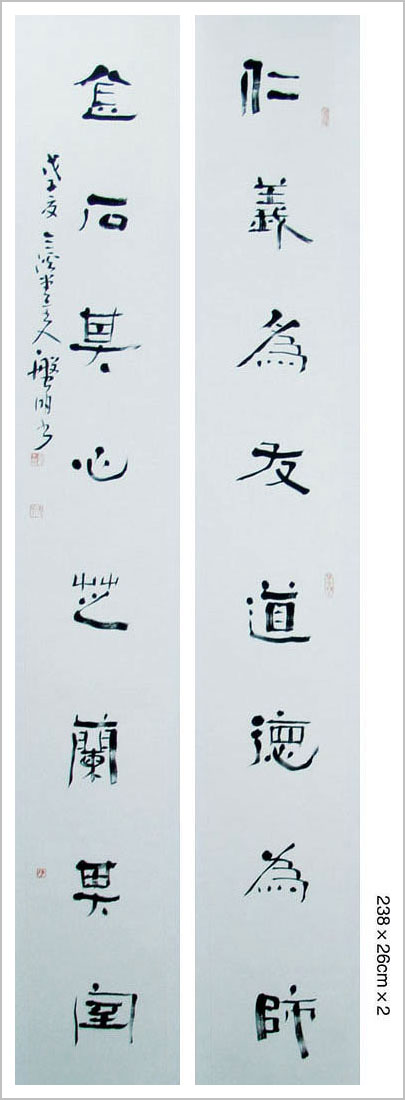 仁義為友道德為師
金石其心芝蘭其室
戊子夏
238 × 26cm × 2